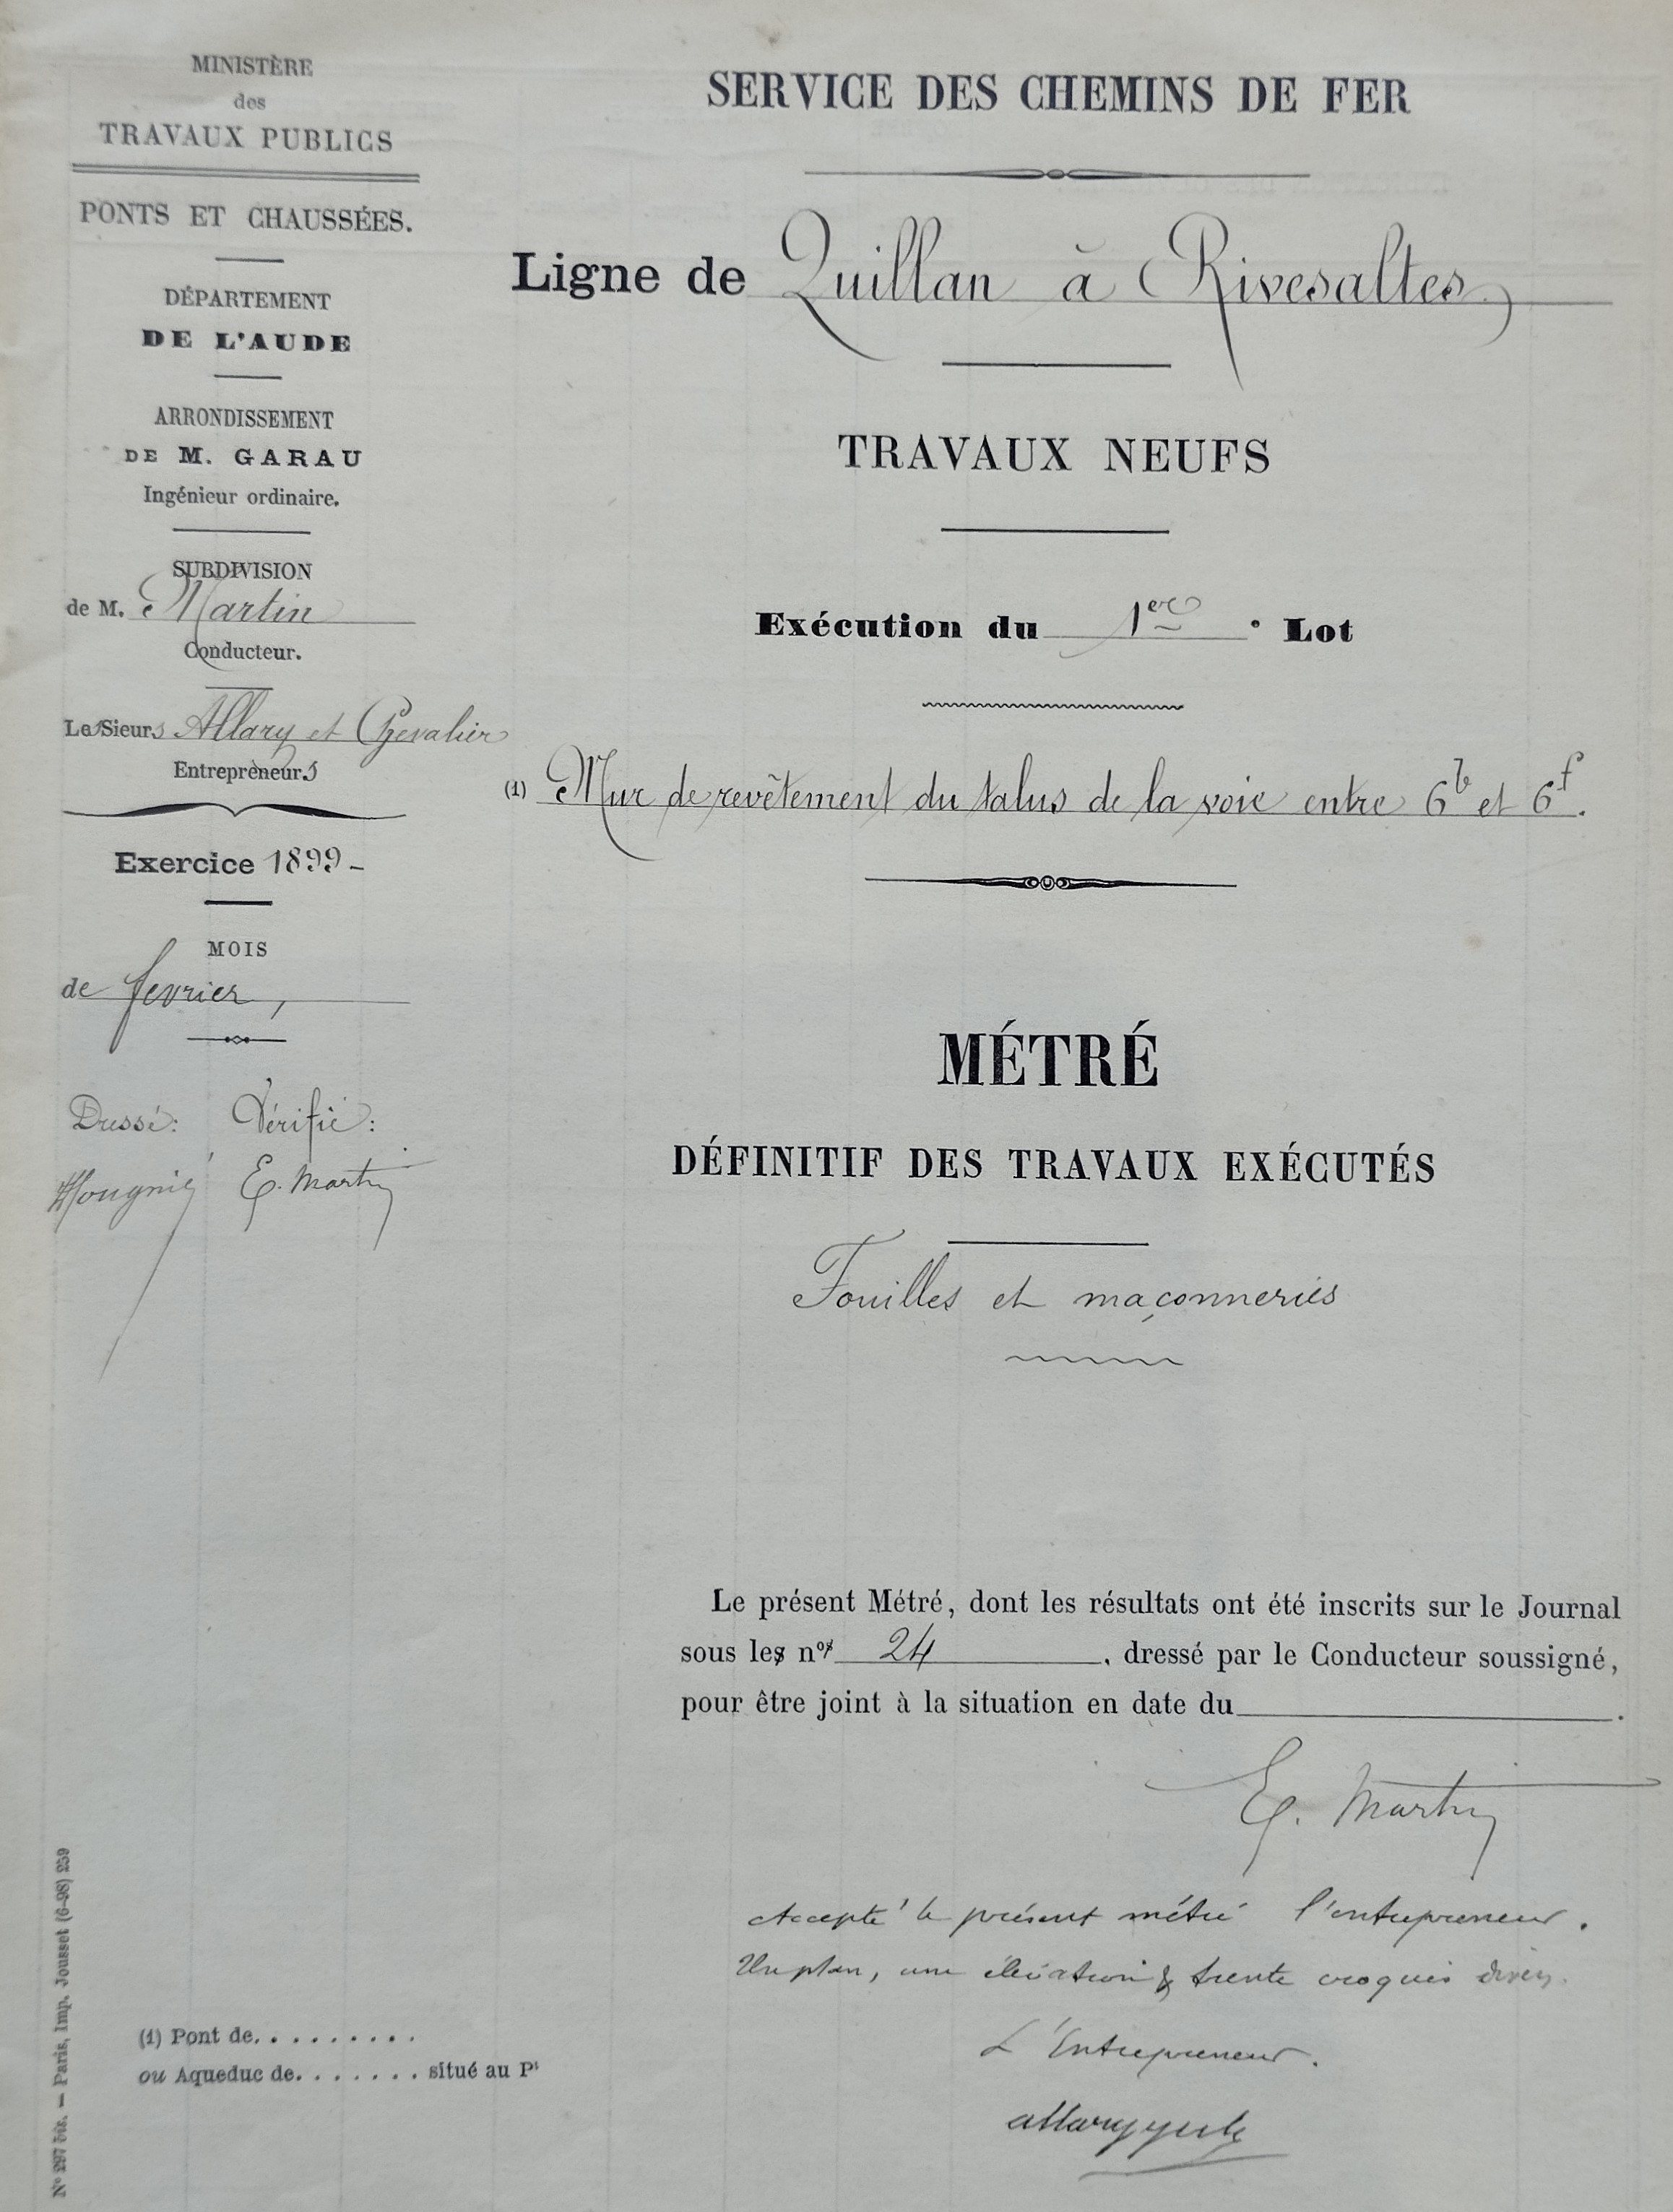 MINISTÈRE
des
TRAVAUX PUBLICS
PONTS ET CHAUSSÉES.
DÉPARTEMENT
DE L'AUDE
ARRONDISSEMENT
DE M. GARAU
Ingénieur ordinaire.
SUBDIVISION
de M. Martin
Conducteur.
Les Sieurs Allary et Chevalier
Entrepreneurs
Exercice 1899-
MOIS
de fevrier,
Dressé: Vérifié:
E. Martin
SERVICE DES CHEMINS DE FER
Ligne de Quillan à Rivesaltes
TRAVAUX NEUFS
Exécution du 1er Lot
(1) Mur de revêtement du talus de la voie entre 6b et 6f.
MÉTRÉ
DÉFINITIF DES TRAVAUX EXÉCUTÉS
Fouilles et maçonneries
Le présent Métré, dont les résultats ont été inscrits sur le Journal
sous les nos 24, dressé par le Conducteur soussigné,
pour être joint à la situation en date du .
E. Martin
Accepté le présent métré l'entrepreneur.
Un plan, une élévation & trente croquis divers.
L'Entrepreneur.
allary
(1) Pont de. . . . . . . . .
ou Aqueduc de. . . . . . . situé au Pt
No 297 bis. — Paris, Imp. Jousset (6-98) 259